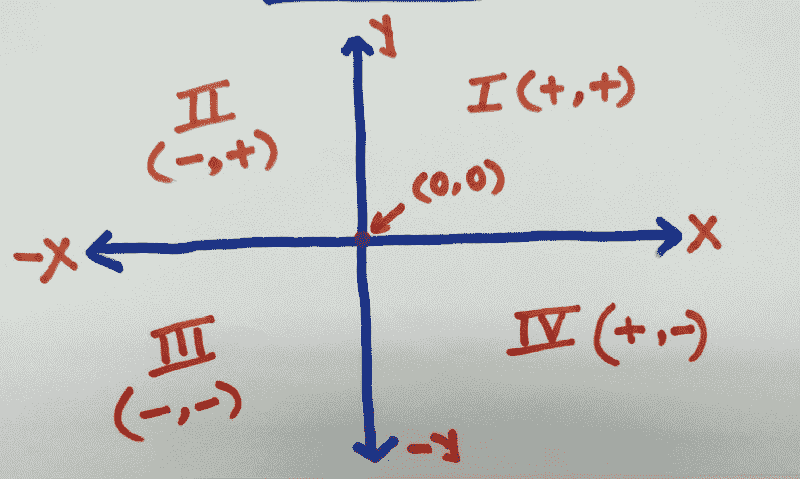 y
II
(-,+)
I (+,+)
(0,0)
-X
X
III
(-,-)
IV (+,-)
-y